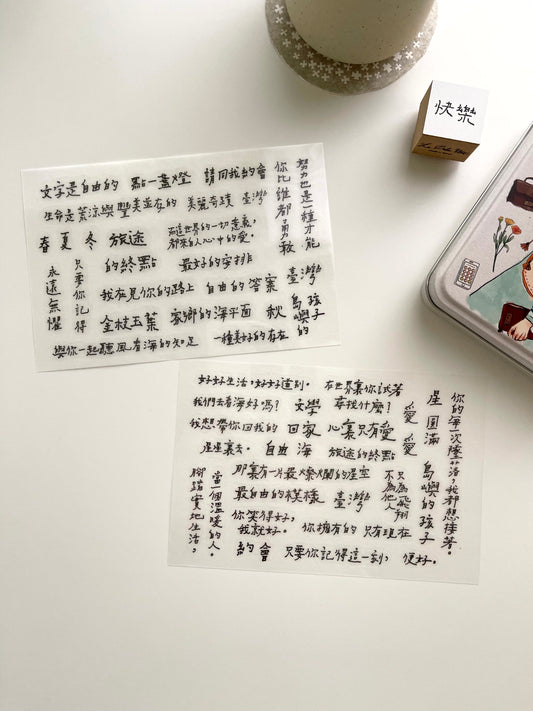 快樂
文字是自由的
點一盞燈
請回我的會
你比誰都勇敢
努力也是一種才能
生命是荒涼與豐美並存的
美麗奇蹟
臺灣
春
夏
冬
旅途
而這世界的一切意義，
都來自人心中的愛。
永遠無懼
只要你記得
的終點
最好的安排
我在見你的路上
自由的
答案
臺灣
島嶼的
孩子
金枝玉葉
家鄉的海平面
秋
與你一起聽風有海的知足
一種美好的存在
好好生活，好好道別。
在世界裏你試著
我們去看海好嗎？
文學
尋找什麼？
愛
星
圓滿
你的每一次墜落，我都想接著。
我想帶你回我的
回家
心裏只有愛
愛
星星裏去。
自由
海
旅途的終點
島嶼的孩子
腳踏實地生活，
當一個溫暖的人。
那裏有一片最燦爛的星空
只為飛翔
不為他人
最自由的模樣
臺灣
你笑得好，
我就好。
你擁有的
只有現在
約會
只要你記得這一刻，
便好。